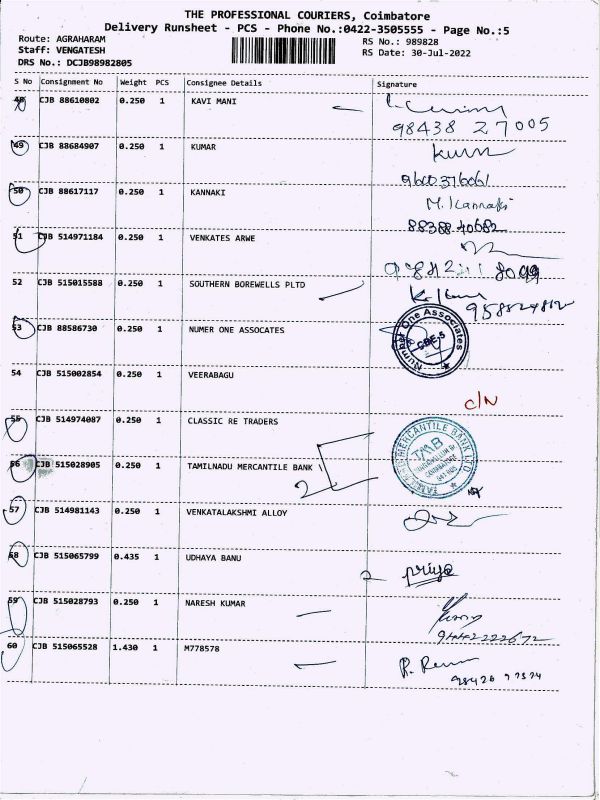 THE PROFESSIONAL COURIERS, Coimbatore
Delivery Runsheet - PCS - Phone No.:0422-3505555 - Page No.:5
Route: AGRAHARAM
RS No.: 989828
Staff: VENGATESH
RS Date: 30-Jul-2022
DRS No.: DCJB98982805
S No Consignment No Weight PCS Consignee Details Signature
48 CJB 88610802 0.250 1 KAVI MANI
98438 27005
49 CJB 88684907 0.250 1 KUMAR
Kumar
9600376061
50 CJB 88617117 0.250 1 KANNAKI M. Kannaki
88388 40682
51 CJB 514971184 0.250 1 VENKATES ARWE
52 CJB 515015588 0.250 1 SOUTHERN BOREWELLS PLTD
53 CJB 88586730 0.250 1 NUMER ONE ASSOCATES
Number One Associates
CBE-5
54 CJB 515002854 0.250 1 VEERABAGU
C/N
55 CJB 514974087 0.250 1 CLASSIC RE TRADERS
56 CJB 515028905 0.250 1 TAMILNADU MERCANTILE BANK
2
TAMILNAD MERCANTILE BANK LTD.
TMB
COIMBATORE
57 CJB 514981143 0.250 1 VENKATALAKSHMI ALLOY
58 CJB 515065799 0.435 1 UDHAYA BANU
2 priya
59 CJB 515028793 0.250 1 NARESH KUMAR
60 CJB 515065528 1.430 1 M778578